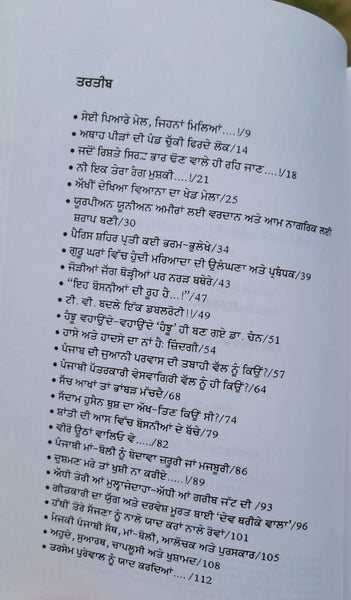 ਤਰਤੀਬ
• ਸੇਈ ਪਿਆਰੇ ਮੇਲ, ਜਿਹਨਾਂ ਮਿਲਿਆਂ....!/9
• ਅਥਾਹ ਪੀੜਾਂ ਦੀ ਪੰਡ ਚੁੱਕੀ ਫਿਰਦੇ ਲੋਕ/14
• ਜਦੋਂ ਰਿਸ਼ਤੇ ਸਿਰਫ਼ ਭਾਰ ਢੋਣ ਵਾਲੇ ਹੀ ਰਹਿ ਜਾਣ....!/18
• ਨੀ ਇਕ ਤੇਰਾ ਰੰਗ ਮੁਸ਼ਕੀ....!/21
• ਅੱਖੀਂ ਦੇਖਿਆ ਵਿਆਨਾ ਦਾ ਖੇਡ ਮੇਲਾ/25
• ਯੂਰਪੀਅਨ ਯੂਨੀਅਨ ਅਮੀਰਾਂ ਲਈ ਵਰਦਾਨ ਅਤੇ ਆਮ ਨਾਗਰਿਕ ਲਈ
ਸ਼ਰਾਪ ਬਣੀ/30
• ਪੈਰਿਸ ਸ਼ਹਿਰ ਪ੍ਰਤੀ ਕਈ ਭਰਮ-ਭੁਲੇਖੇ/34
• ਗੁਰੂ ਘਰਾਂ ਵਿੱਚ ਹੁੰਦੀ ਮਰਿਆਦਾ ਦੀ ਉਲੰਘਣਾ ਅਤੇ ਪ੍ਰਬੰਧਕ/39
• ਜੋੜੀਆਂ ਜੱਗ ਥੋੜ੍ਹੀਆਂ ਪਰ ਨਰੜ ਬਥੇਰੇ/43
• "ਇਹ ਬੋਸਨੀਆਂ ਦੀ ਰੂਹ ਹੈ...!"/47
• ਟੀ. ਵੀ. ਬਦਲੇ ਇੱਕ ਡਬਲਰੋਟੀ!/49
• ਹੰਝੂ ਵਹਾਉਂਦੇ-ਵਹਾਉਂਦੇ 'ਹੰਝੂ' ਹੀ ਬਣ ਗਏ ਡਾ. ਚੰਨ/51
• ਹਾਸੇ ਅਤੇ ਹਾਦਸੇ ਦਾ ਨਾਂ ਹੈ: ਜ਼ਿੰਦਗੀ/54
• ਪੰਜਾਬ ਦੀ ਜੁਆਨੀ ਪਰਵਾਸ ਦੀ ਤਬਾਹੀ ਵੱਲ ਨੂੰ ਕਿਉਂ?/57
• ਪੰਜਾਬੀ ਪੱਤਰਕਾਰੀ ਵੇਸਵਾਗਿਰੀ ਵੱਲ ਨੂੰ ਹੀ ਕਿਉਂ?/64
• ਸੱਚ ਆਖਾਂ ਤਾਂ ਭਾਂਬੜ ਮੱਚਦੈ/68
• ਸੱਦਾਮ ਹੁਸੈਨ ਬੁਸ਼ ਦਾ ਅੱਖ-ਤਿਣ ਕਿਉਂ ਸੀ?/74
• ਸ਼ਾਂਤੀ ਦੀ ਆਸ ਵਿੱਚ ਬੋਸਨੀਆਂ ਦੇ ਬੱਚੇ/79
• ਵੀਰੋ ਊਠਾਂ ਵਾਲਿਓ ਵੇ.....!/82
• ਪੰਜਾਬੀ ਮਾਂ-ਬੋਲੀ ਨੂੰ ਬੇਦਾਵਾ ਜ਼ਰੂਰੀ ਜਾਂ ਮਜਬੂਰੀ/86
• ਦੁਸ਼ਮਣ ਮਰੇ ਤਾਂ ਖੁਸ਼ੀ ਨਾ ਕਰੀਏ....!/89
• ਅੱਧੀ ਤੇਰੀ ਆਂ ਮੁਲ੍ਹਾਜੇਦਾਰਾ-ਅੱਧੀ ਆਂ ਗਰੀਬ ਜੱਟ ਦੀ /93
• ਗੀਤਕਾਰੀ ਦਾ ਯੁੱਗ ਅਤੇ ਦਰਵੇਸ਼ ਮੂਰਤ ਬਾਈ 'ਦੇਵ ਥਰੀਕੇ ਵਾਲਾ'/96
• ਹੱਥੀਂ ਤੋਰੇ ਸੱਜਣਾ ਨੂੰ ਨਾਲੇ ਯਾਦ ਕਰਾਂ ਨਾਲੇ ਰੋਵਾਂ/101
• ਮੰਜਕੀ ਪੰਜਾਬੀ ਸੱਥ, ਮਾਂ-ਬੋਲੀ, ਆਲੋਚਕ ਅਤੇ ਪੁਰਸਕਾਰ/105
• ਅਹੁਦੇ, ਸੁਆਰਥ, ਚਾਪਲੂਸੀ ਅਤੇ ਖੁਸ਼ਾਮਦ/108
• ਤਰਸੇਮ ਪੁਰੇਵਾਲ ਨੂੰ ਯਾਦ ਕਰਦਿਆਂ..../112